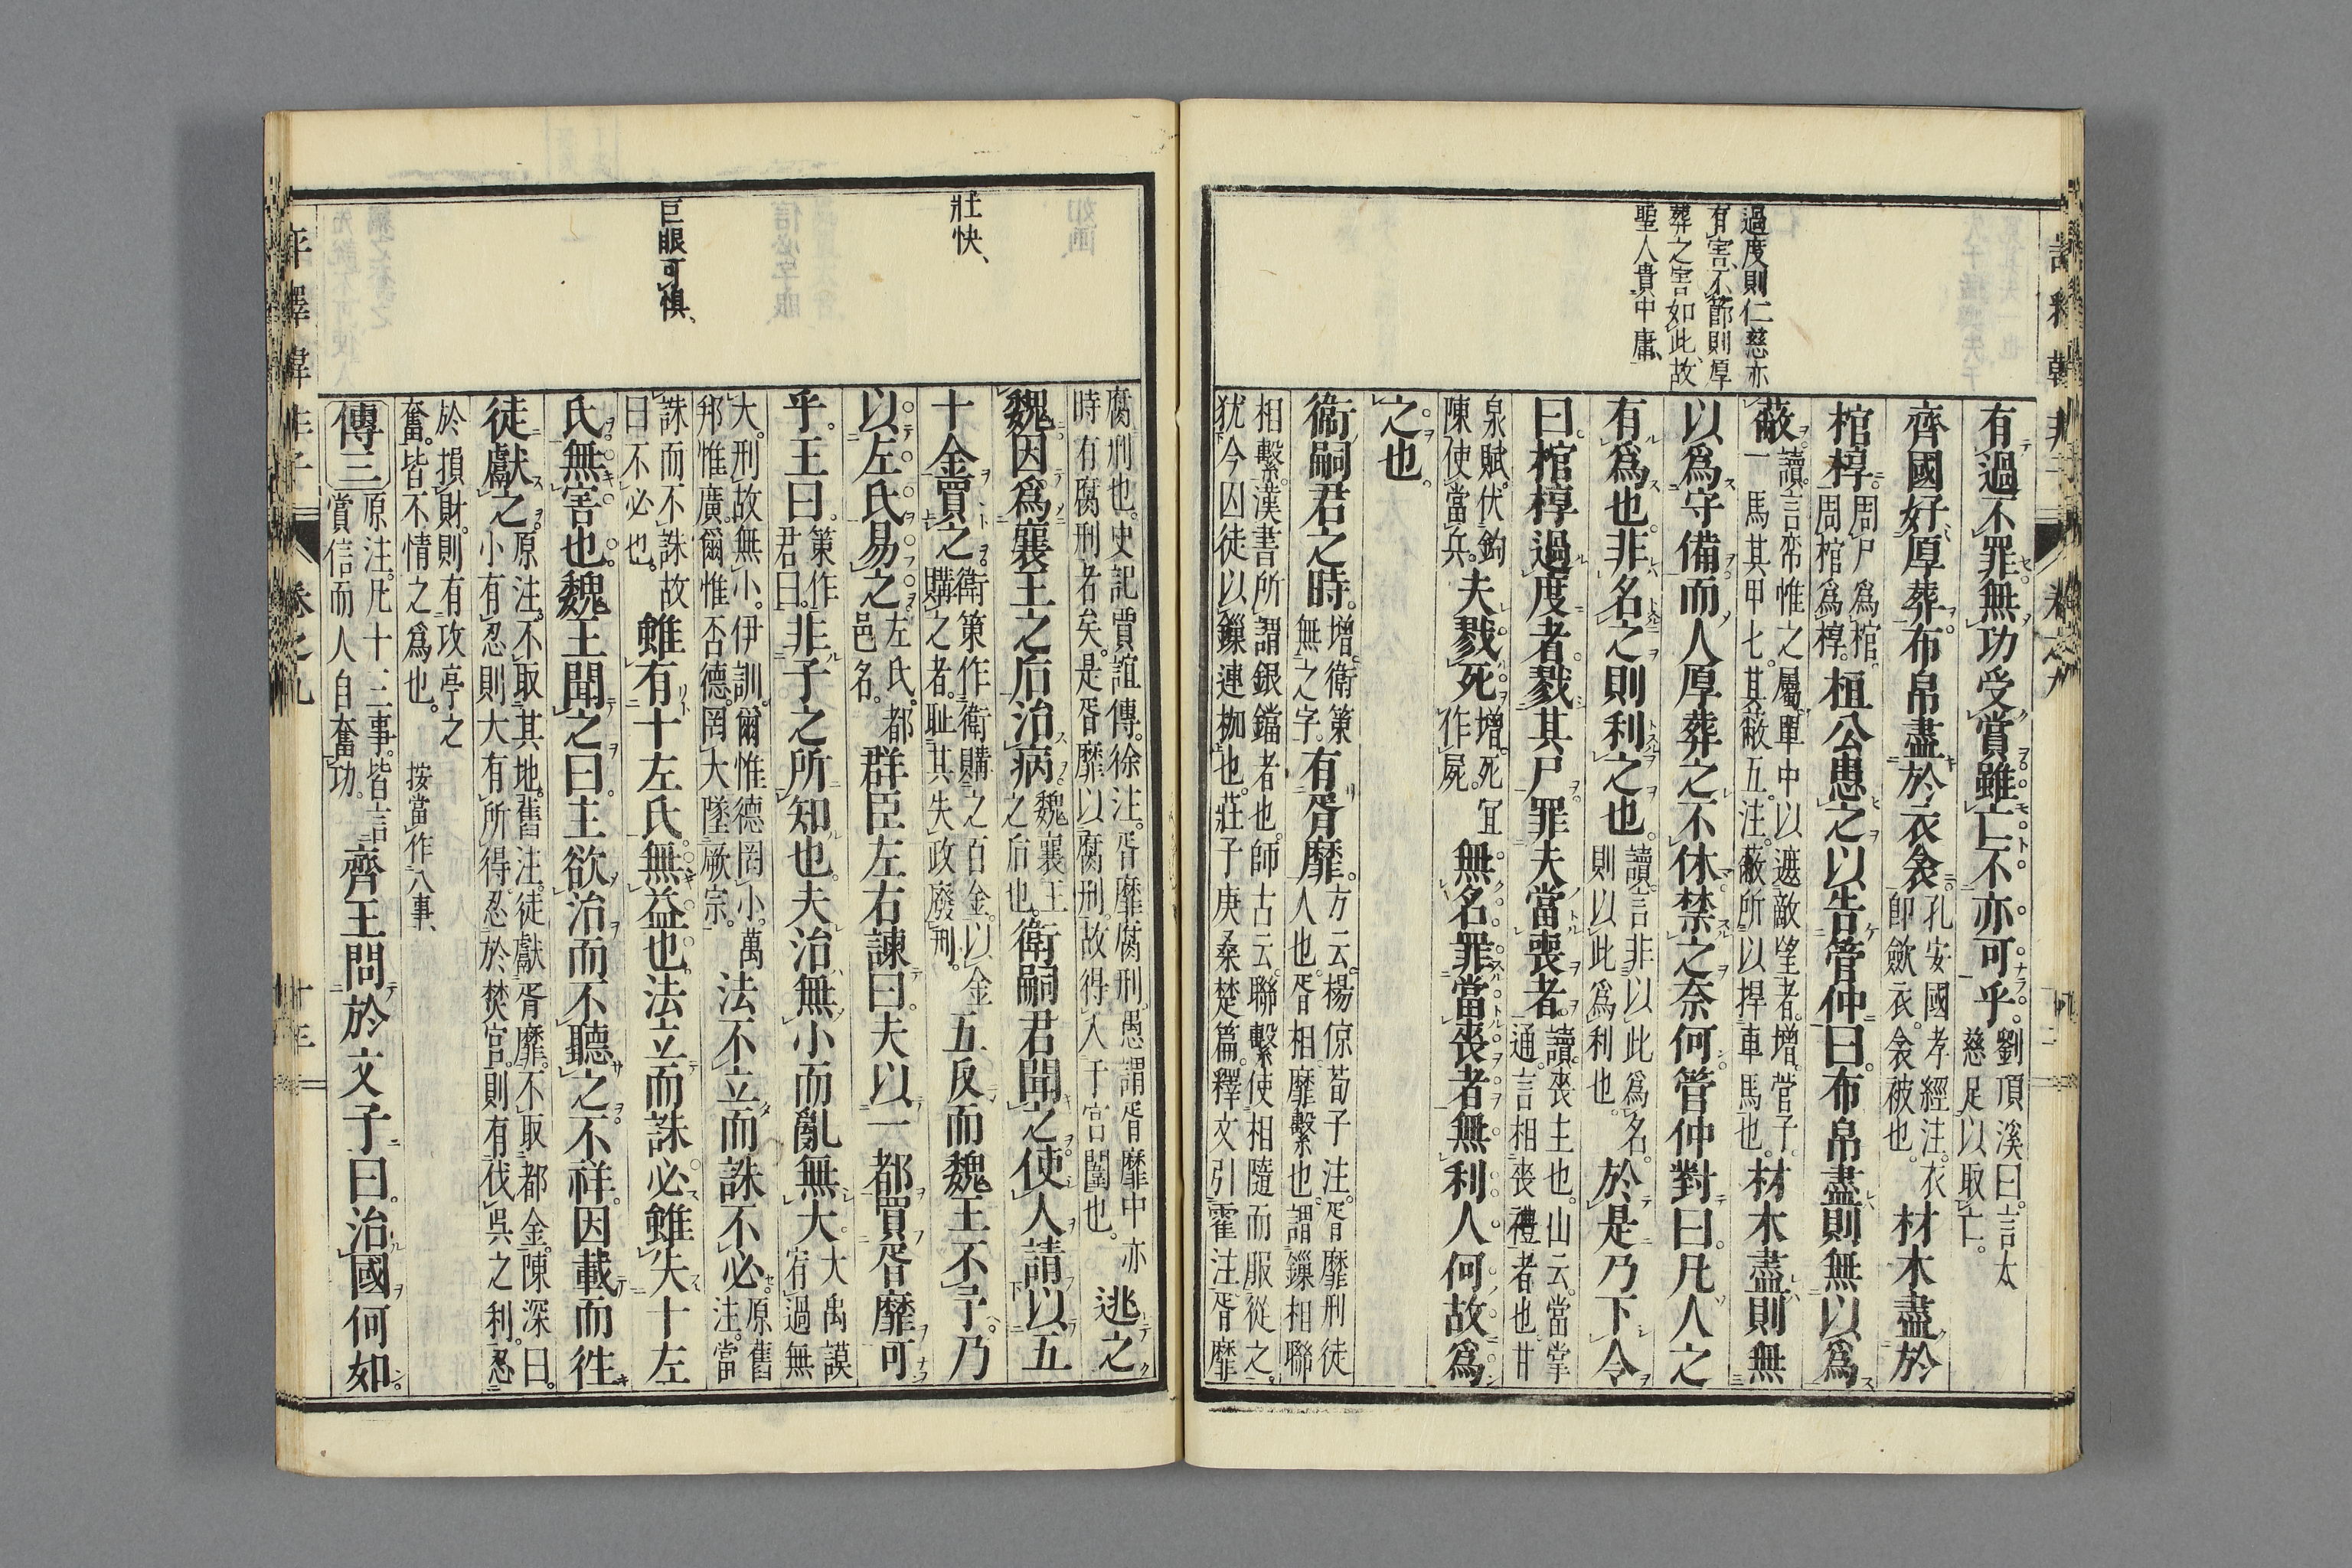 過度則仁慈亦
有害不節則厚
葬之害如此故
聖人貴中庸
有過不罪無功受賞雖亡不亦可乎劉頂溪曰言太慈足以取亡
齊國好厚葬布帛盡於衣衾孔安國孝經注衣即斂衣衾被也材木盡於
棺椁周尸爲棺周棺爲椁桓公患之以告管仲曰布帛盡則無以爲
蔽讀言帟惟之屬單中以遮敵望者增管子一馬其甲七其蔽五注蔽所以捍車馬也材木盡則無
以爲守備而人厚葬之不休禁之奈何管仲對曰凡人之
有爲也非名之則利之也讀言非以此爲名則以此爲利也於是乃下令
曰棺椁過度者戮其尸罪夫當喪者讀喪主也山云當掌通言相喪禮者也甘
泉賦伏鉤陳使當兵夫戮死增死宜作屍無名罪當喪者無利人何故爲
之也
衞嗣君之時增衞策無之字有胥靡方云楊倞荀子注胥靡刑徒人也胥相靡繫也謂鏁相聯
相繫漢書所謂銀鐺者也師古云聯繫使相隨而服從之猶今囚徒以鏁連枷也莊子庚桑楚篇釋文引霍注胥靡
壯快
巨眼可惧
腐刑也史記賈誼傳徐注胥靡腐刑愚謂胥靡中亦時有腐刑者矣是胥靡以腐刑故得人于宮闈也逃之
魏因爲襄王之后治病魏襄王之后也衞嗣君聞之使人請以五
十金買之衞策作衞購之百金以金購之者耻其失政廢刑五反而魏王不予乃
以左氏易之左氏都邑名群臣左右諫曰夫以一都買胥靡可
乎王曰策作君曰非子之所知也夫治無小而亂無大大禹謨宥過無
大刑故無小伊訓爾惟德罔小萬邦惟廣爾惟否德罔大墜厥宗法不立而誅不必原舊注當
誅而不誅故曰不必也雖有十左氏無益也法立而誅必雖失十左
氏無害也魏王聞之曰主欲治而不聽之不祥因載而徃
徒獻之原注不取其地舊注徒獻胥靡不取都金陳深曰小有忍則大有所得忍於焚宮則有伐吳之利忍
於損財則有攻亭之奮皆不情之爲也按當作八事
傳三原注凡十三事皆言賞信而人自奮功齊王問於文子曰治國何如